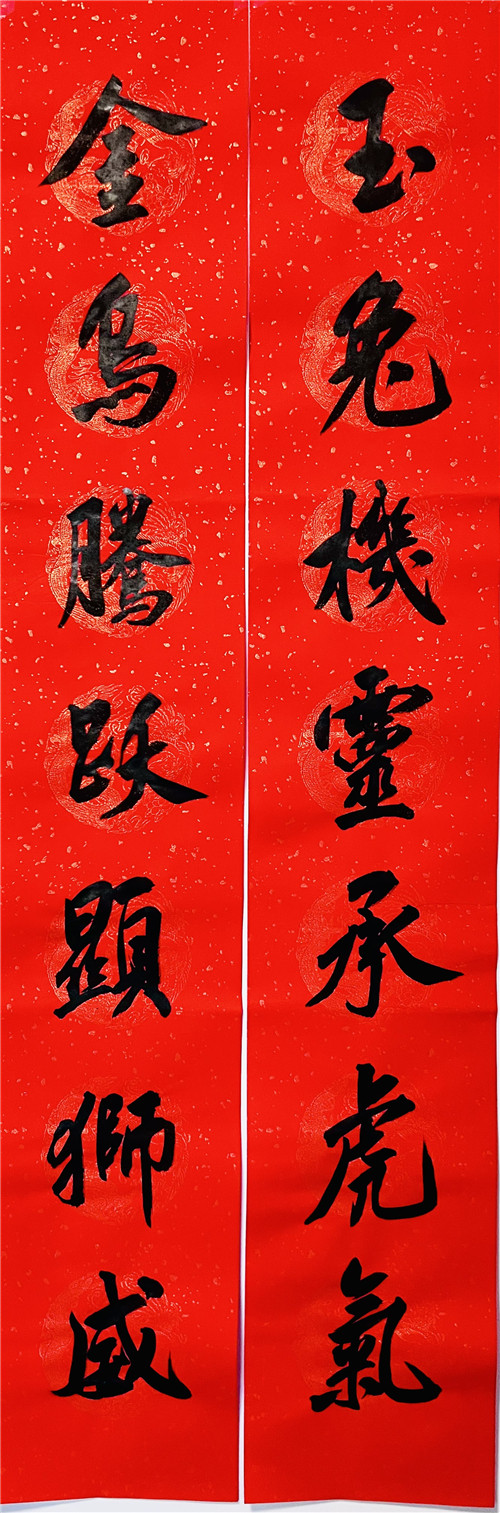 玉兔機靈承虎氣
金烏騰跃顯獅威